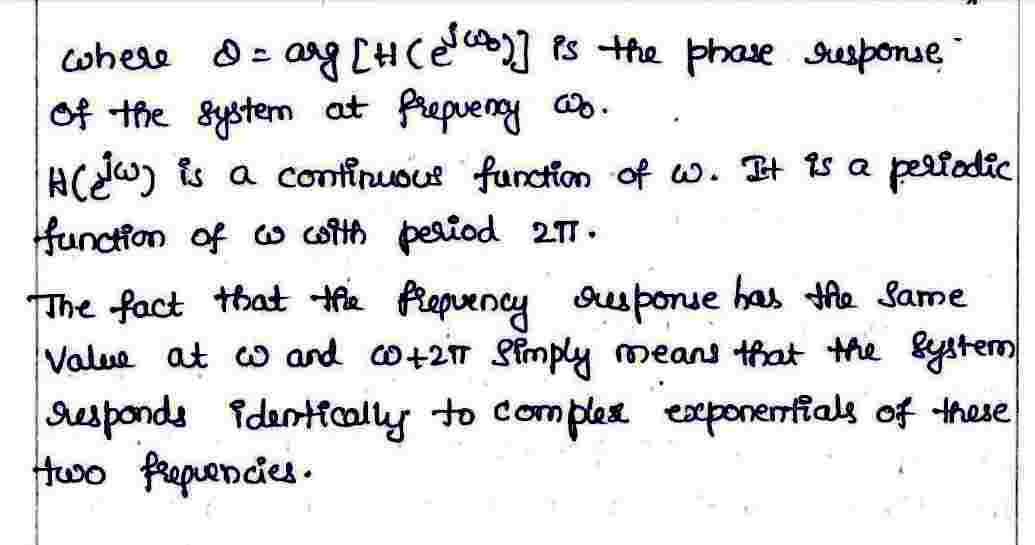 where θ = arg [H(e^jω₀)] is the phase response
of the system at frequency ω₀.
H(e^jω) is a continuous function of ω. It is a periodic
function of ω with period 2π.
The fact that the frequency response has the same
Value at ω and ω+2π simply means that the system
responds identically to complex exponentials of these
two frequencies.